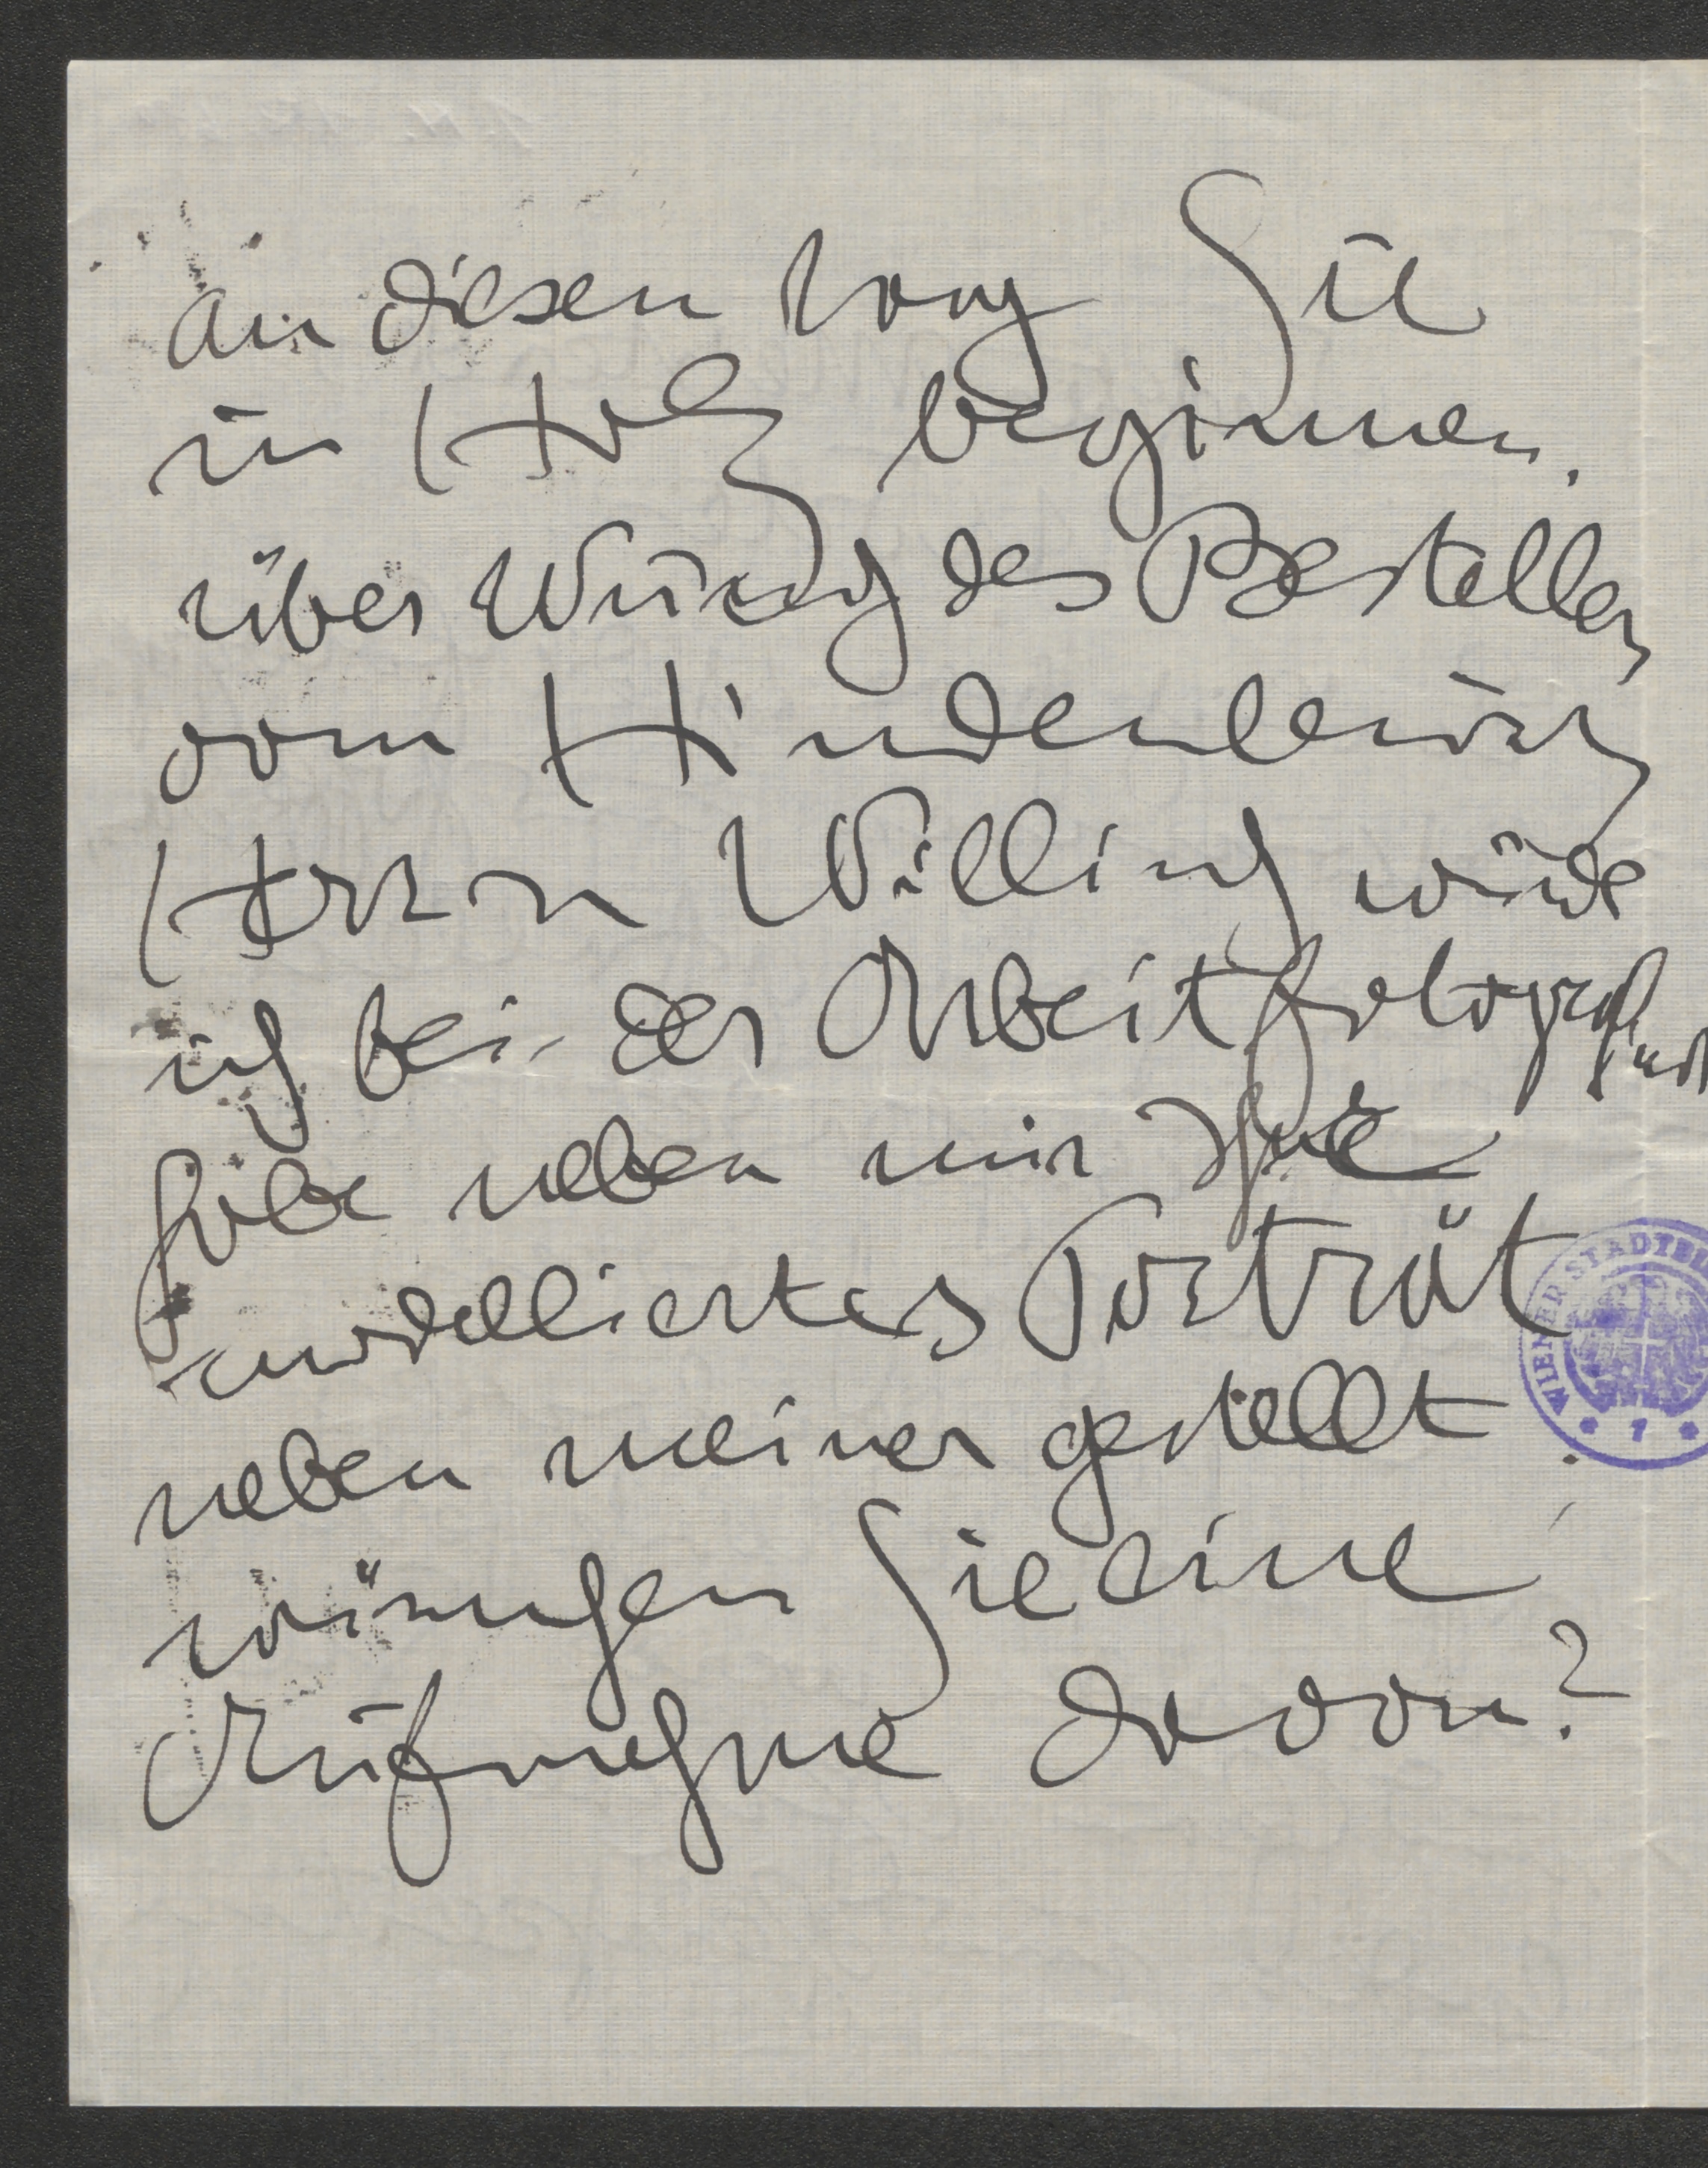 an diesen Tag Sie
in Holz beginnen.
über Wunsch des Bestellers
vom Hindenburg
Herrn Willing wurde
ich bei der Arbeit fotograf. und
habe neben mir Ihre
modelliertes Porträt
neben meiner gestellt
wünschen Sie eine
Aufnahme davon?
WIENER STADTBI
* 1 *